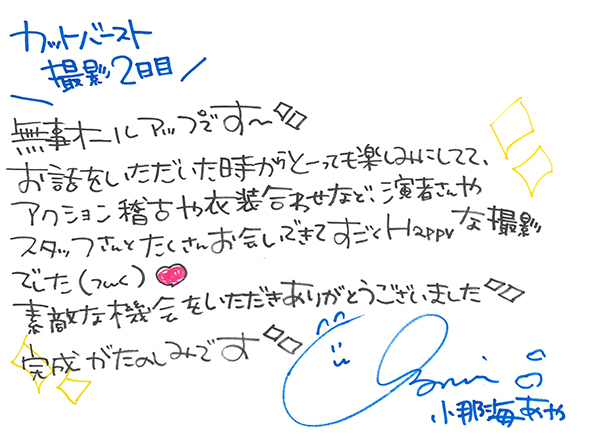 カットバースト
撮影2日目
無事オールアップです〜
お話をいただいた時からとーっても楽しみにしてて、
アクション稽古や衣装合わせなど、演者さんや
スタッフさんとたくさんお会いできてすごくHappyな撮影
でした(つω<)
素敵な機会をいただきありがとうございました
完成がたのしみです
小那海あや